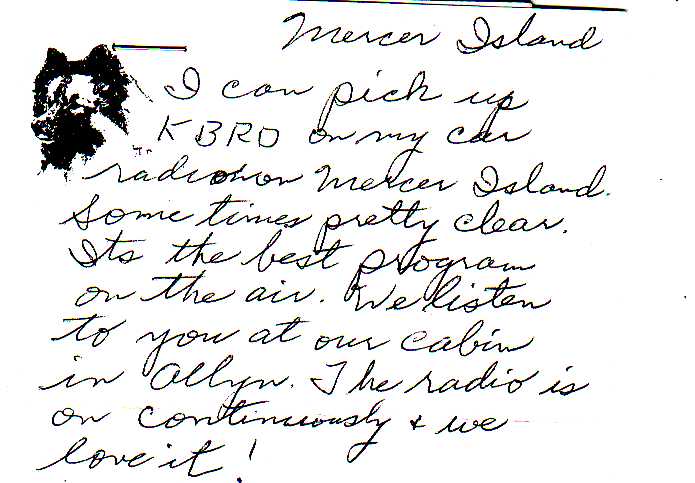 Mercer Island
I can pick up
KBRD on my car
radio on Mercer Island.
Some times pretty clear.
Its the best program
on the air. We listen
to you at our cabin
in Allyn. The radio is
on continuously & we
love it!